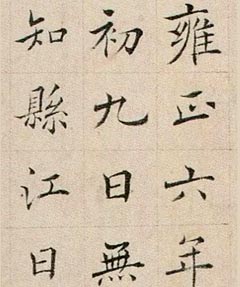 雍正六年
初九日無
知縣江日